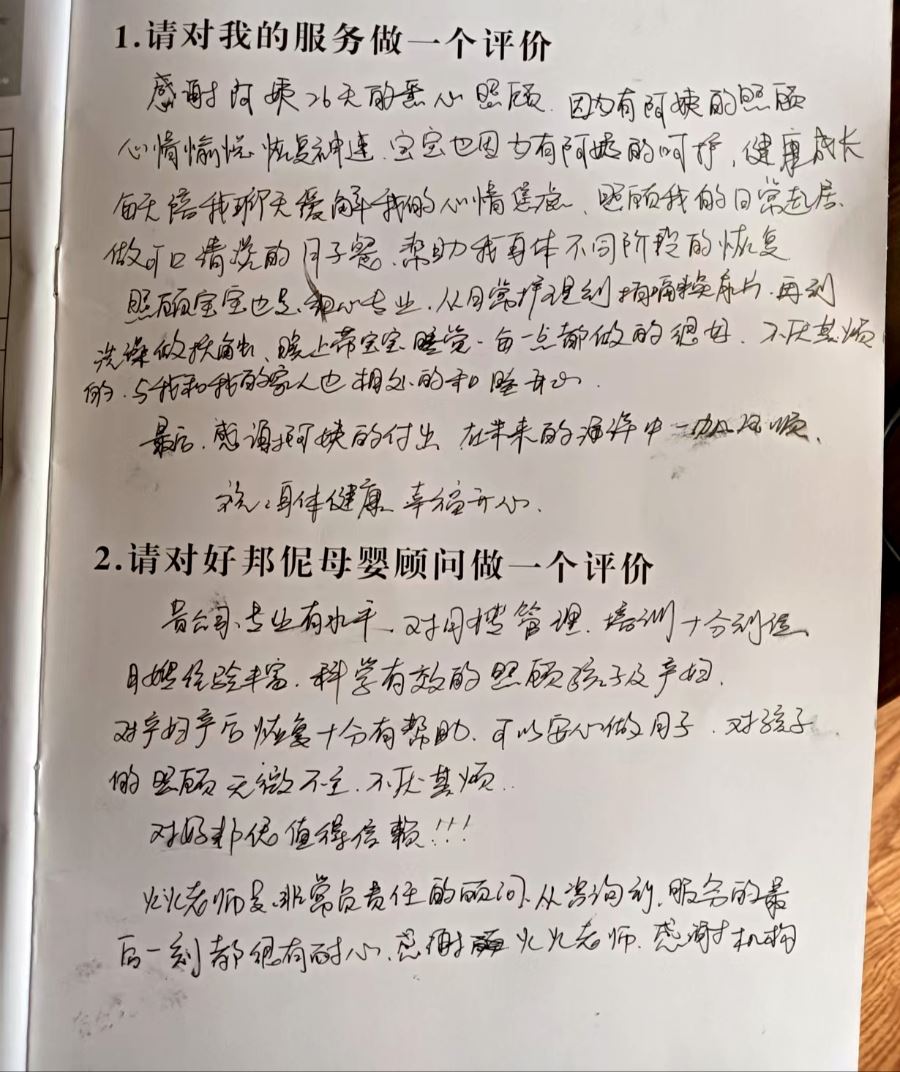 1.请对我的服务做一个评价
感谢阿姨26天的悉心照顾.因为有阿姨的照顾
心情愉悦.恢复神速.宝宝也因为有阿姨的呵护,健康成长
每天陪我聊天缓解我的心情焦虑、照顾我的日常起居.
做可口清淡的月子餐、帮助我身体不同阶段的恢复
照顾宝宝也是细心专业.从日常护理到换尿片.再到
洗澡做抚触、晚上带宝宝睡觉.每一点都做的很好.不厌其烦
的.与我和我的家人也相处的和睦开心.
最后.感谢阿姨的付出 在未来的海洋中一帆风顺.
祝:身体健康 幸福开心.
2.请对好邦伲母婴顾问做一个评价
贵公司、专业有水平、对月嫂管理.培训十分到位、
月嫂经验丰富.科学有效的照顾孩子及产妇.
对产妇产后恢复十分有帮助.可以安心做月子.对孩子
的照顾无微不至.不厌其烦..
对好邦伲值得信赖!!!
火火老师是非常负责任的顾问.从咨询到.服务的最
后一刻都很有耐心.感谢火火老师.感谢机构